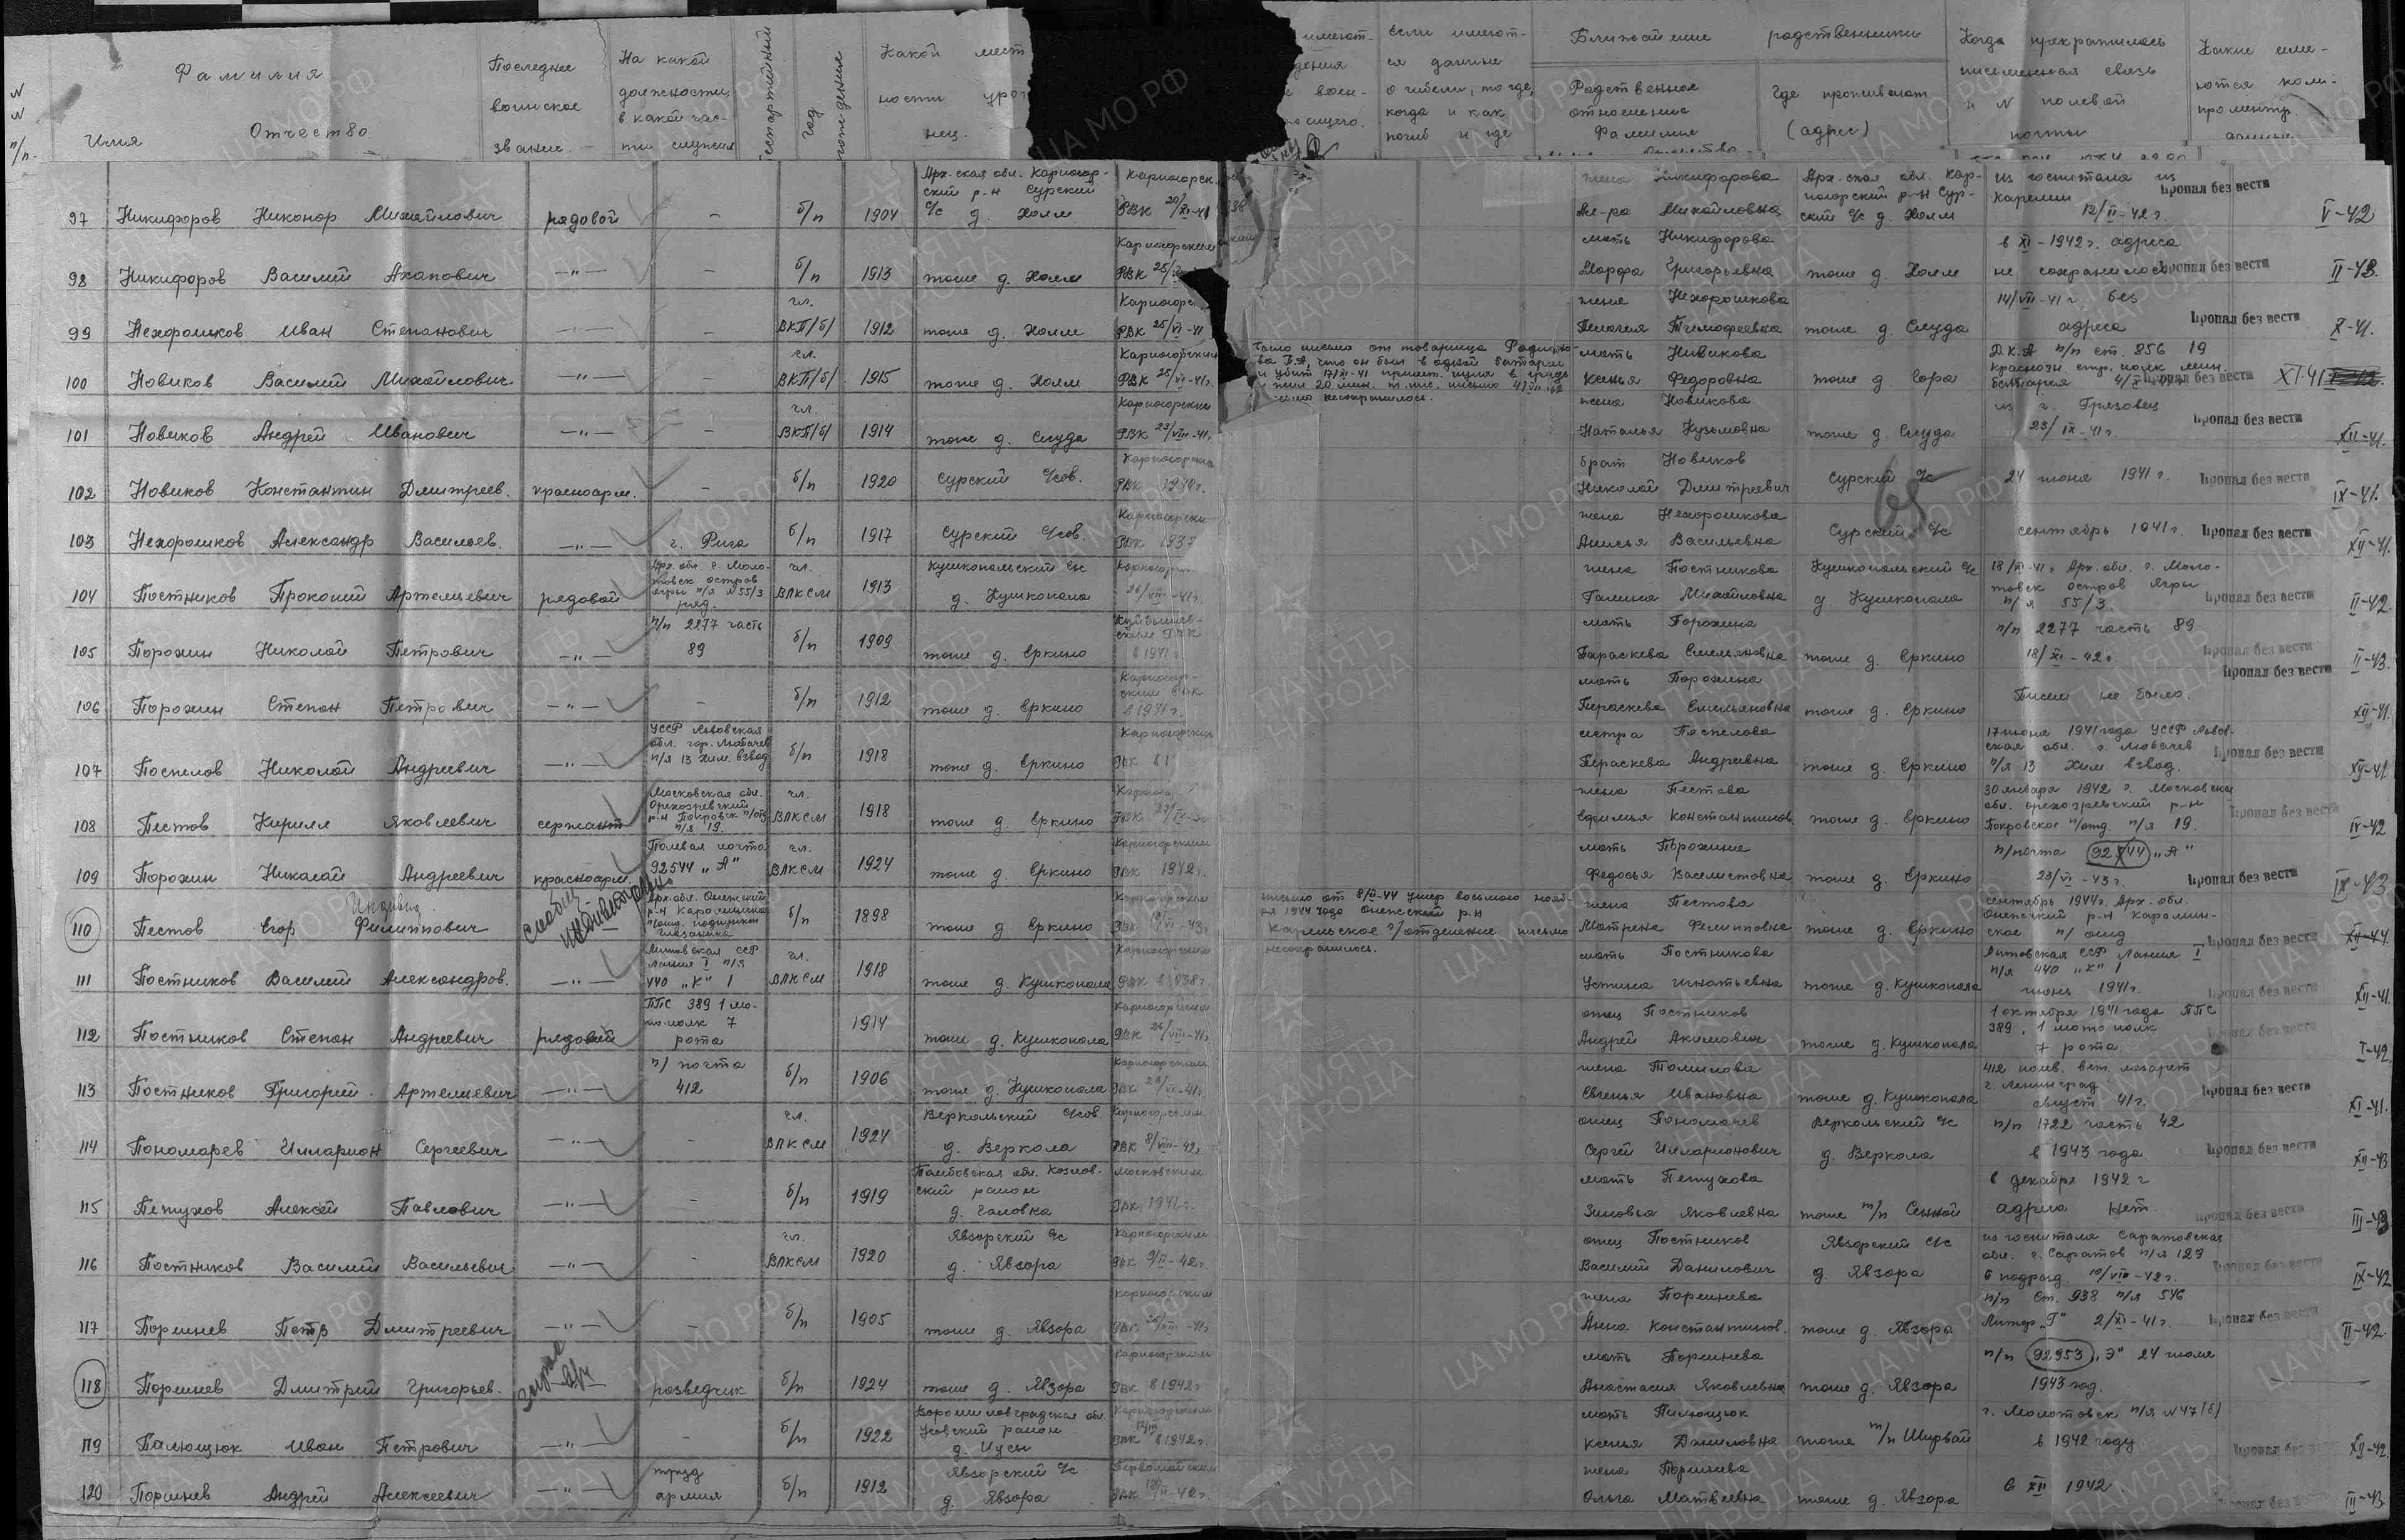 N N п/п.
Фамилия
Имя Отчество
Последнее воинское звание.
На какой должности, в какой части служил
год рождения
Какой мест
ности урож
нец.
если имеют-
ся данные
о гибели, то где,
когда и как
погиб и где
Ближайшие родственники
Родственное отношение Фамилия
Где проживают (адрес)
Когда прекратилась письменная связь и N полевой почты
Какие име-
ются ком-
97 Никифоров Никонор Михайлович рядовой - б/п 1904 Арх-ская обл. Карпогор-ский р-н Сурский с/с д. Холм Карпогорск. РВК 20/XI-41 жена Никифорова Ал-ра Михайловна Арх-ская обл. Кар-погорский р-н Сур-ский с/с д. Холм из госпиталя из Карелии 12/II-42 г. Пропал без вести V-42
98 Никифоров Василий Ахапович -"- - б/п 1913 тоже д. Холм Карпогорским РВК мать Никифорова Марфа Григорьевна тоже д. Холм в XI-1942 г. адреса не сохранилось Пропал без вести II-43.
99 Нехорошков Иван Степанович -"- - чл. ВКП/б/ 1912 тоже д. Холм РВК 25/VI-41 жена Нехорошкова Пелагея Тимофеевна тоже д. Слуда 14/VII-41 г. без адреса Пропал без вести X-41.
100 Новиков Василий Михайлович -"- - чл. ВКП/б/ 1915 тоже д. Холм Карпогорским РВК 25/VI-41г. было письмо от товарища что он был в одной батареи и убит мать Новикова Ксенья Федоровна тоже д. Гора Д.К.А п/п ст. 856 19 Пропал без вести XI-41
101 Новиков Андрей Иванович -"- - чл. ВКП/б/ 1914 тоже д. Слуда Карпогорским РВК 23/VIII-41г. жена Новикова Наталья Кузьмовна тоже д. Слуда из г. Грязовец 23/IX-41г. Пропал без вести XII-41.
102 Новиков Константин Дмитриев. красноарм. - б/п 1920 Сурский с/сов. РВК 1940г. брат Новиков Николай Дмитреевич Сурский с/с 24 июня 1941 г. Пропал без вести IX-41.
103 Нехорошков Александр Васильев. -"- г. Рига б/п 1917 Сурский с/сов. РВК 1937 жена Нехорошкова Анисья Васильевна Сурский с/с сентябрь 1941 г. Пропал без вести XII-41.
104 Постников Прокопий Артемиевич рядовой Арх. обл. г. Моло-товск остров Ягры п/я N55/3 ряд. чл. ВЛКСМ 1913 Кушкопальский с/с д. Кушкопала 26/VIII-41г. жена Постникова Галина Михайловна Кушкопальский с/с д. Кушкопала 18/XI-41 г Арх. обл. г. Моло-товск остров Ягры п/я 55/3. Пропал без вести II-42.
105 Порохин Николай Петрович -"- п/п 2277 часть 89 б/п 1909 тоже д. Еркино в 1941 г. мать Порохина Параскева Емельяновна тоже д. Еркино п/п 2277 часть 89 18/XI-42 г Пропал без вести II-43.
106 Порохин Степан Петрович -"- - б/п 1912 тоже д. Еркино в 1941 г. мать Порохина Пераскева Емельяновна тоже д. Еркино Писем не было. Пропал без вести XII-41.
107 Поспелов Николай Андреевич -"- УССР Львовская обл. гор. Любачев п/я 13 хим. взвод б/п 1918 тоже д. Еркино сестра Поспелова Пераскева Андреевна тоже д. Еркино 17 июня 1941 года УССР Львов-ская обл. г. Любачев п/я 13 Хим. взвод. Пропал без вести XII-41
108 Пестов Кирилл Яковлевич сержант Московская обл. Орехозуевский р-н Покровск п/отд п/я 19. чл. ВЛКСМ 1918 тоже д. Еркино жена Пестова Ефимья Константинов. тоже д. Еркино 30 января 1942 г. Московская обл. Орехозуевский р-н Покровское п/отд. п/я 19. Пропал без вести IV-42
109 Порохин Николай Андреевич красноарм. Полевая почта 92544 "А" чл. ВЛКСМ 1924 тоже д. Еркино Карпогорским РВК 1942 г. мать Порохина Федосья Васелистовна тоже д. Еркино п/почта 92544 "А" 23/VI-43 г. Пропал без вести IX-43
110 Пестов Егор Филиппович Арх. обл. Онежский р-н б/п 1898 тоже д. Еркино письмо от 8/XI-44 умер восьмого нояб-ря 1944 года Онежский р-н Карельское п/отделение письмо несохранилось. жена Пестова Матрена Филипповна тоже д. Еркино сентябрь 1944 г. Арх. обл. Онежский р-н п/отд Пропал без вести XII-44.
111 Постников Василий Александров. -"- Литовская ССР Лания I п/я 440 "К" 1 чл. ВЛКСМ 1918 тоже д. Кушкопала РВК в 1938г. мать Постникова Устина Игнатьевна тоже д. Кушкопала Литовская ССР Лания I п/я 440 "К" 1 июнь 1941г. Пропал без вести XII-41.
112 Постников Степан Андреевич рядовой ППС 389 1 мо-то полк 7 рота 1914 тоже д. Кушкопала РВК 26/VIII-41г. отец Постников Андрей Акимович тоже д. Кушкопала 1 октября 1941 года ППС 389, 1 мото полк 7 рота Пропал без вести I-42
113 Постников Григорий Артемиевич -"- п/почта 412 б/п 1906 тоже д. Кушкопала Карпогорским жена Томилова Евгенья Ивановна тоже д. Кушкопала 412 полев. лазарет г. Ленинград август 41 г. Пропал без вести XI-41.
114 Пономарев Илларион Сергеевич -"- - чл. ВЛКСМ 1924 Веркольский с/сов. д. Веркола РВК 8/VIII-42г. отец Пономарев Сергей Илларионович Веркольский с/с д. Веркола п/п 1722 часть 42 в 1943 года Пропал без вести XII-43
115 Петухов Алексей Павлович -"- - б/п 1919 Тамбовская обл. Козлов-ский район Московским РВК 1941 г. мать Петухова Зиновья Яковлевна тоже т/п Сенной в декабре 1942 г адреса нет. Пропал без вести III-43
116 Постников Василий Васильевич -"- - чл. ВЛКСМ 1920 Явзорский с/с д. Явзора РВК 9/II-42г. отец Постников Василий Данилович Явзорский с/с д. Явзора из госпиталя Саратовская обл. г. Саратов п/я 129 6 подразд. 10/VIII-42 г. Пропал без вести IX-42
117 Поршнев Петр Дмитреевич -"- - б/п 1905 тоже д. Явзора Карпогорским жена Поршнева Анна Константинов. тоже д. Явзора п/п ст. 938 п/я 546 Литер "Г" 2/XI-41 г. Пропал без вести II-42.
118 Поршнев Дмитрий Григорьев. разведчик б/п 1924 тоже д. Явзора РВК в 1942 г мать Поршнева Анастасия Яковлевна тоже д. Явзора п/п 92953 "Э" 24 июля 1943 год.
119 Палющюк Иван Петрович -"- - б/п 1922 Ворошиловградская обл. район РВК в 1942 г. мать Пилющюк Ксенья Даниловна тоже т/п Ширвай г. Молотовск п/я N47/б/ в 1942 году Пропал без вести XII-42
120 Поршнев Андрей Алексеевич -"- труд армия б/п 1912 Явзорский с/с д. Явзора Первомайским жена Поршнева Ольга Матвеевна тоже д. Явзора в XII 1942. Пропал без вести III-43